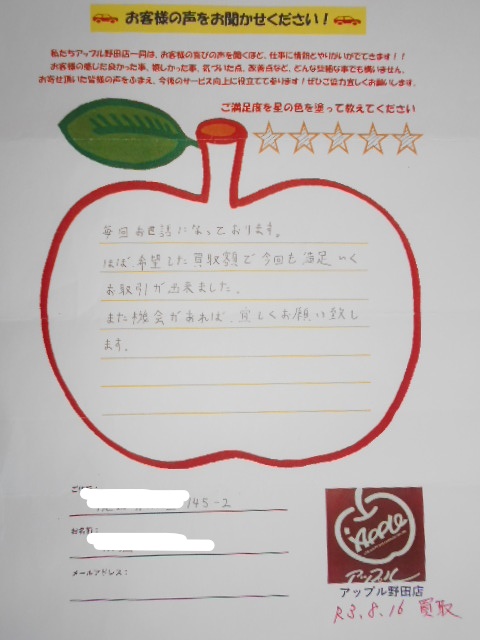 お客様の声をお聞かせください!
私たちアップル野田店一同は、お客様の喜びの声を聞くほど、仕事に情熱とやりがいがでてきます!!
お客様の感じた良かった事、嬉しかった事、気づいた点、改善点など、どんな些細な事でも構いません。
お寄せ頂いた皆様の声をふまえ、今後のサービス向上に役立てて参ります!ぜひご協力宜しくお願いします。
ご満足度を星の色を塗って教えてください
毎回お世話になっております。
ほぼ、希望した買取額で今回も満足いく
お取引が出来ました。
また機会があれば、宜しくお願い致し
ます。
145-2
お名前:
メールアドレス:
Apple
アップル
アップル野田店
R3.8.16 買取